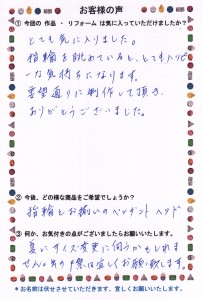 お客様の声
① 今回の 作品 ・ リフォーム は気に入っていただけましたか?
とても気に入りました。
指輪を眺めていると、とてもハッピ
ーな気持ちになります。
要望通りに制作して頂き、
ありがとうございました。
② 今後、どの様な商品をご希望でしょうか?
指輪とお揃いのペンダントヘッド
③ 何か、お気付きの点がございましたらお願いいたします。
夏にサイズ変更に伺うかもしれま
せん。その際は宜しくお願い致します。
＊お名前は伏せさせていただきます。宜しくお願いいたします。